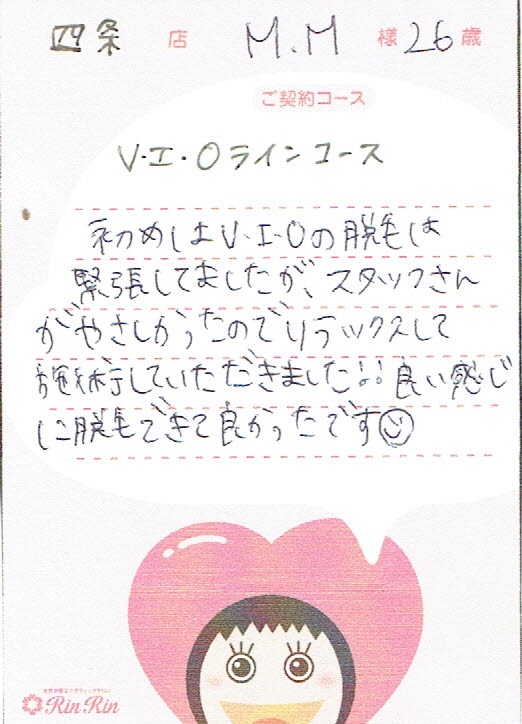 四条 店 M.M 様 26 歳
ご契約コース
V・I・Oラインコース
初めしはV・I・Oの脱毛は
緊張してましたが、スタッフさん
がやさしかったのでリラックスして
施術していただきました!! 良い感じ
に脱毛できて良かったです☺
Rin Rin